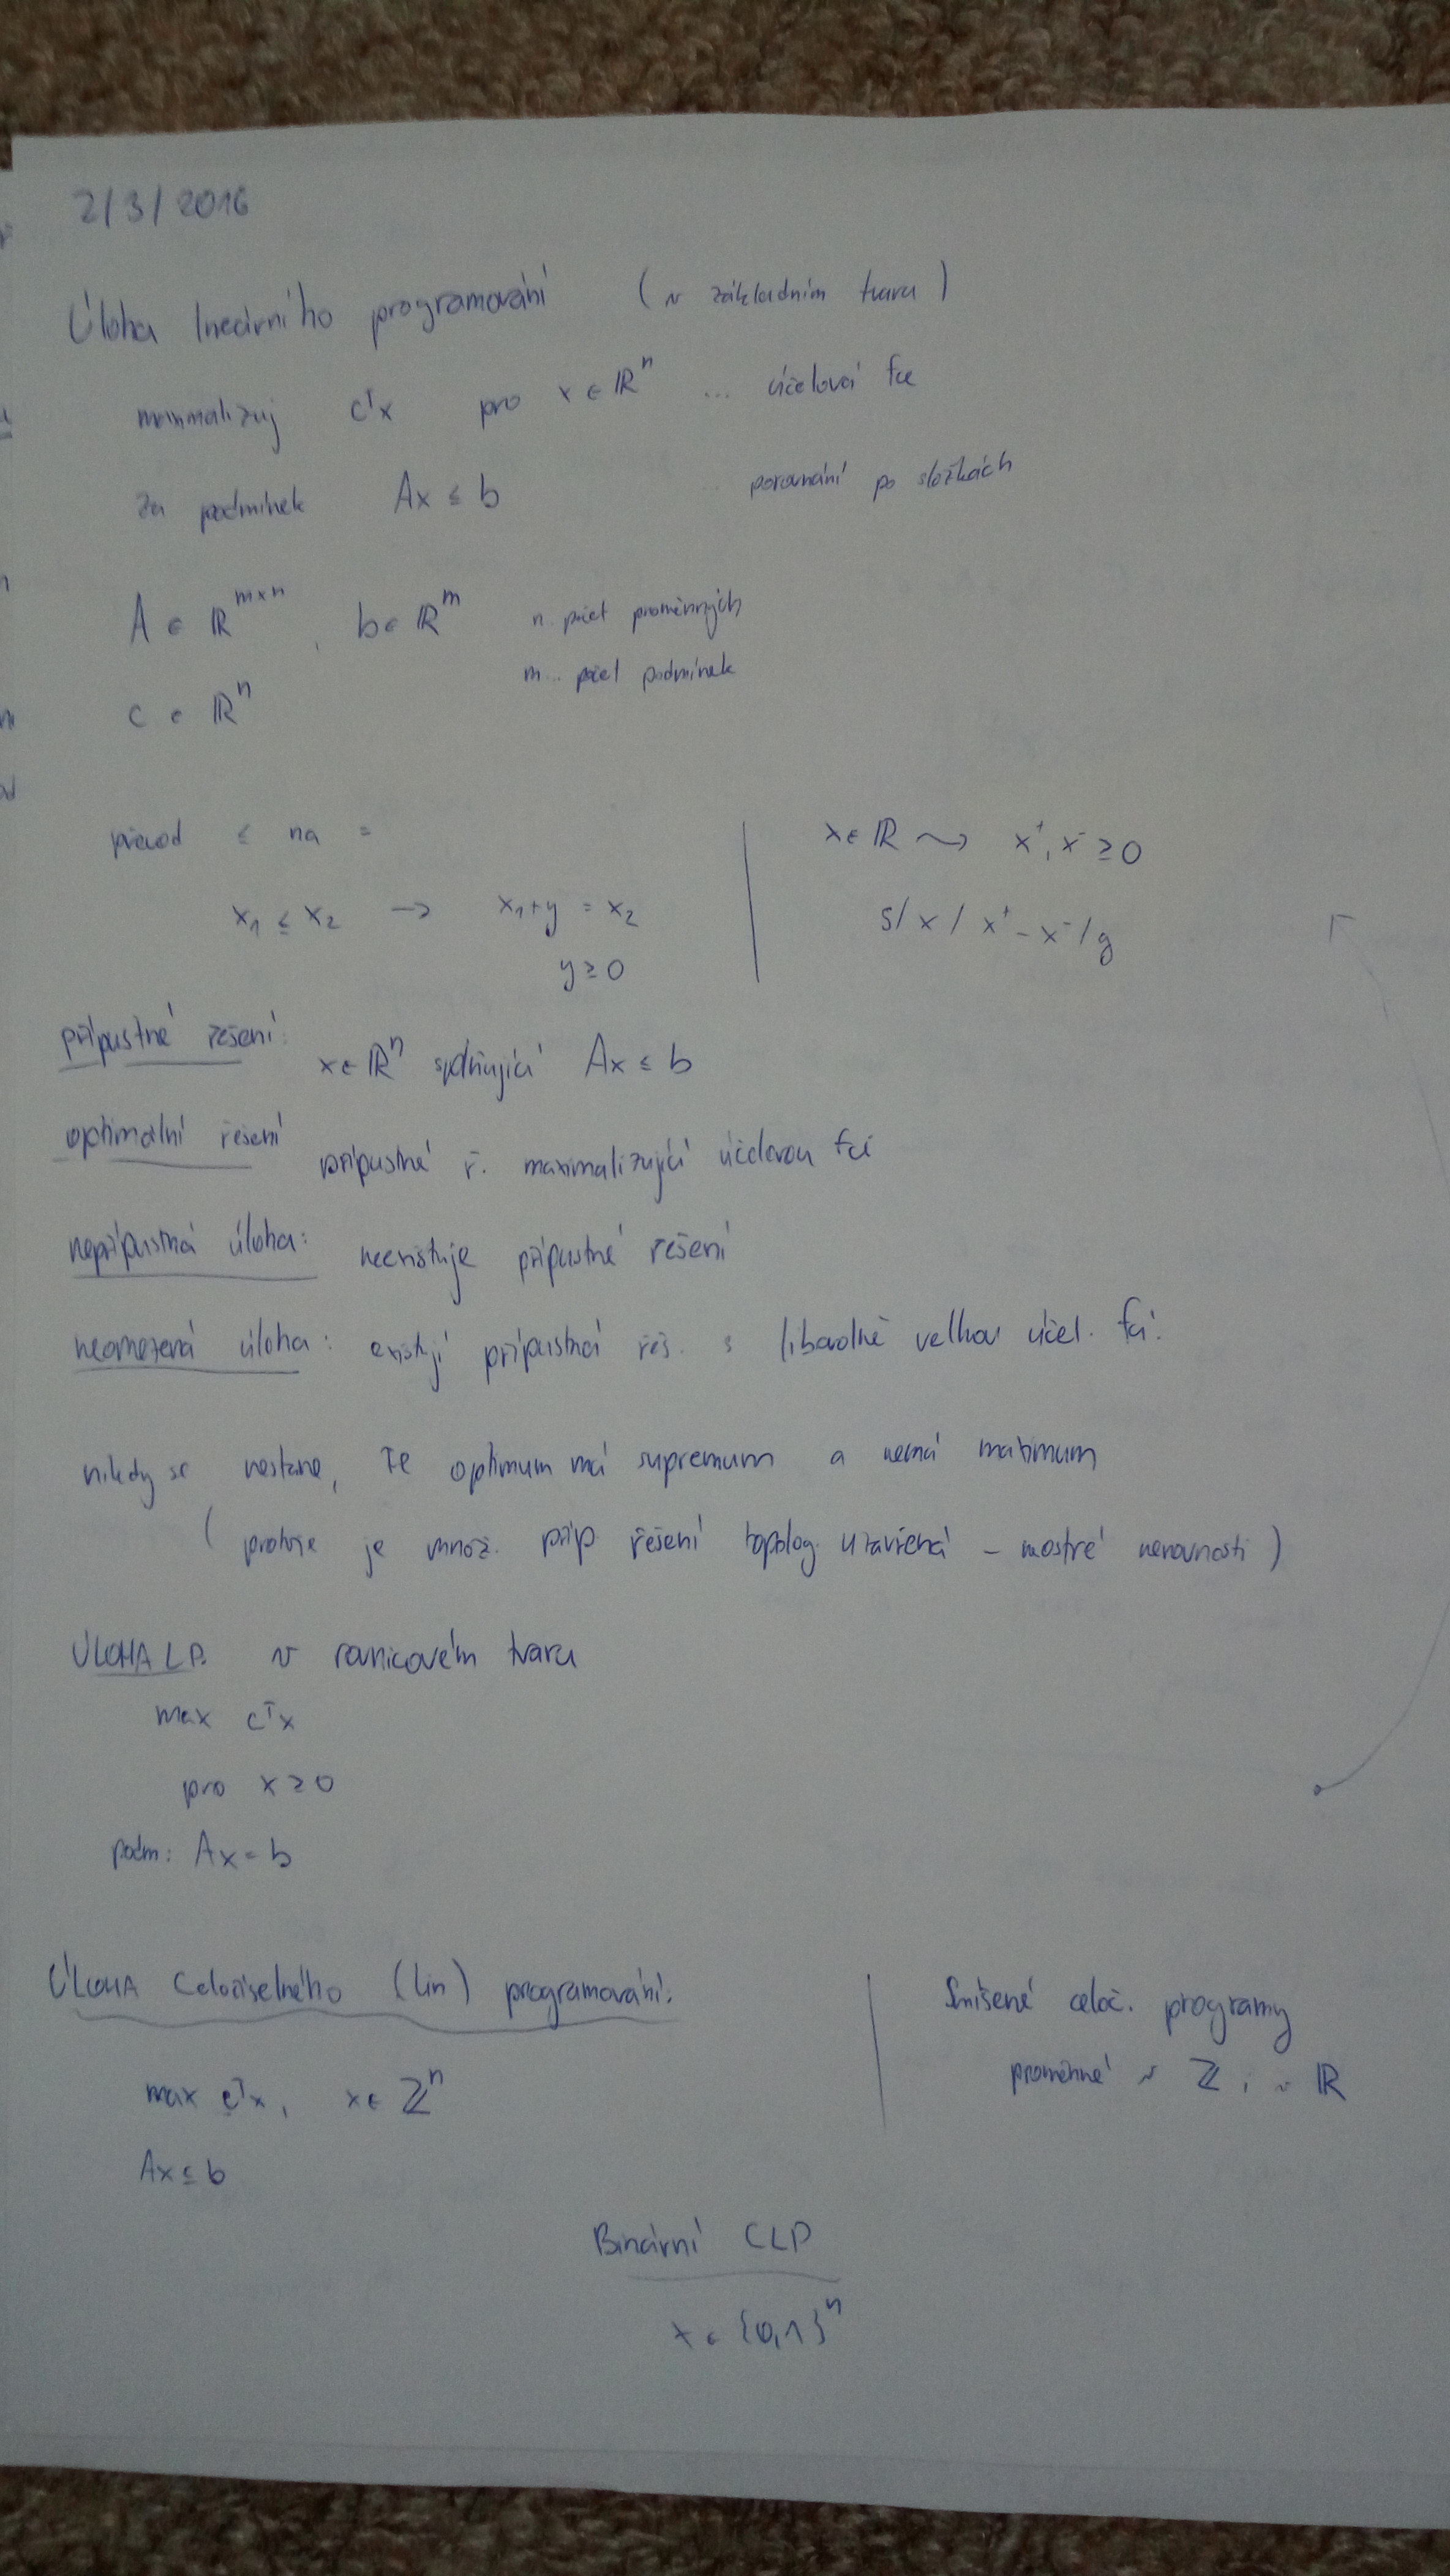 2/3/2016
Úloha lineárního programování (v základním tvaru)
c^T x pro x ∈ ℝ^n ... účelová fce
za podmínek Ax ≤ b porovnání po složkách
A ∈ ℝ^{m×n}, b ∈ ℝ^m n.. počet proměnných
m... počet podmínek
c ∈ ℝ^n
převod ≤ na =
x₁ ≤ x₂ → x₁+y = x₂
y ≥ 0
x ∈ ℝ ⤳ x⁺, x⁻ ≥ 0
s/x/x⁺-x⁻/g
přípustné řešení: x ∈ ℝ^n splňující Ax ≤ b
optimální řešení přípustné ř. maximalizující účelovou fci
nepřípustná úloha: neexistuje přípustné řešení
neomezená úloha: existují přípustná řeš. s libovolně velkou účel. fcí.
nikdy se nestane, že optimum má supremum a nemá maximum
(protože je množ. příp. řešení topolog. uzavřená - neostré nerovnosti)
ÚLOHA LP. v rovnicovém tvaru
max c^T x
pro x ≥ 0
podm: Ax = b
ÚLOHA Celočíselného (lin) programování:
max c^T x, x ∈ ℤ^n
Ax ≤ b
Smíšené celoč. programy
proměnné v ℤ i v ℝ
Binární CLP
x ∈ {0,1}^n